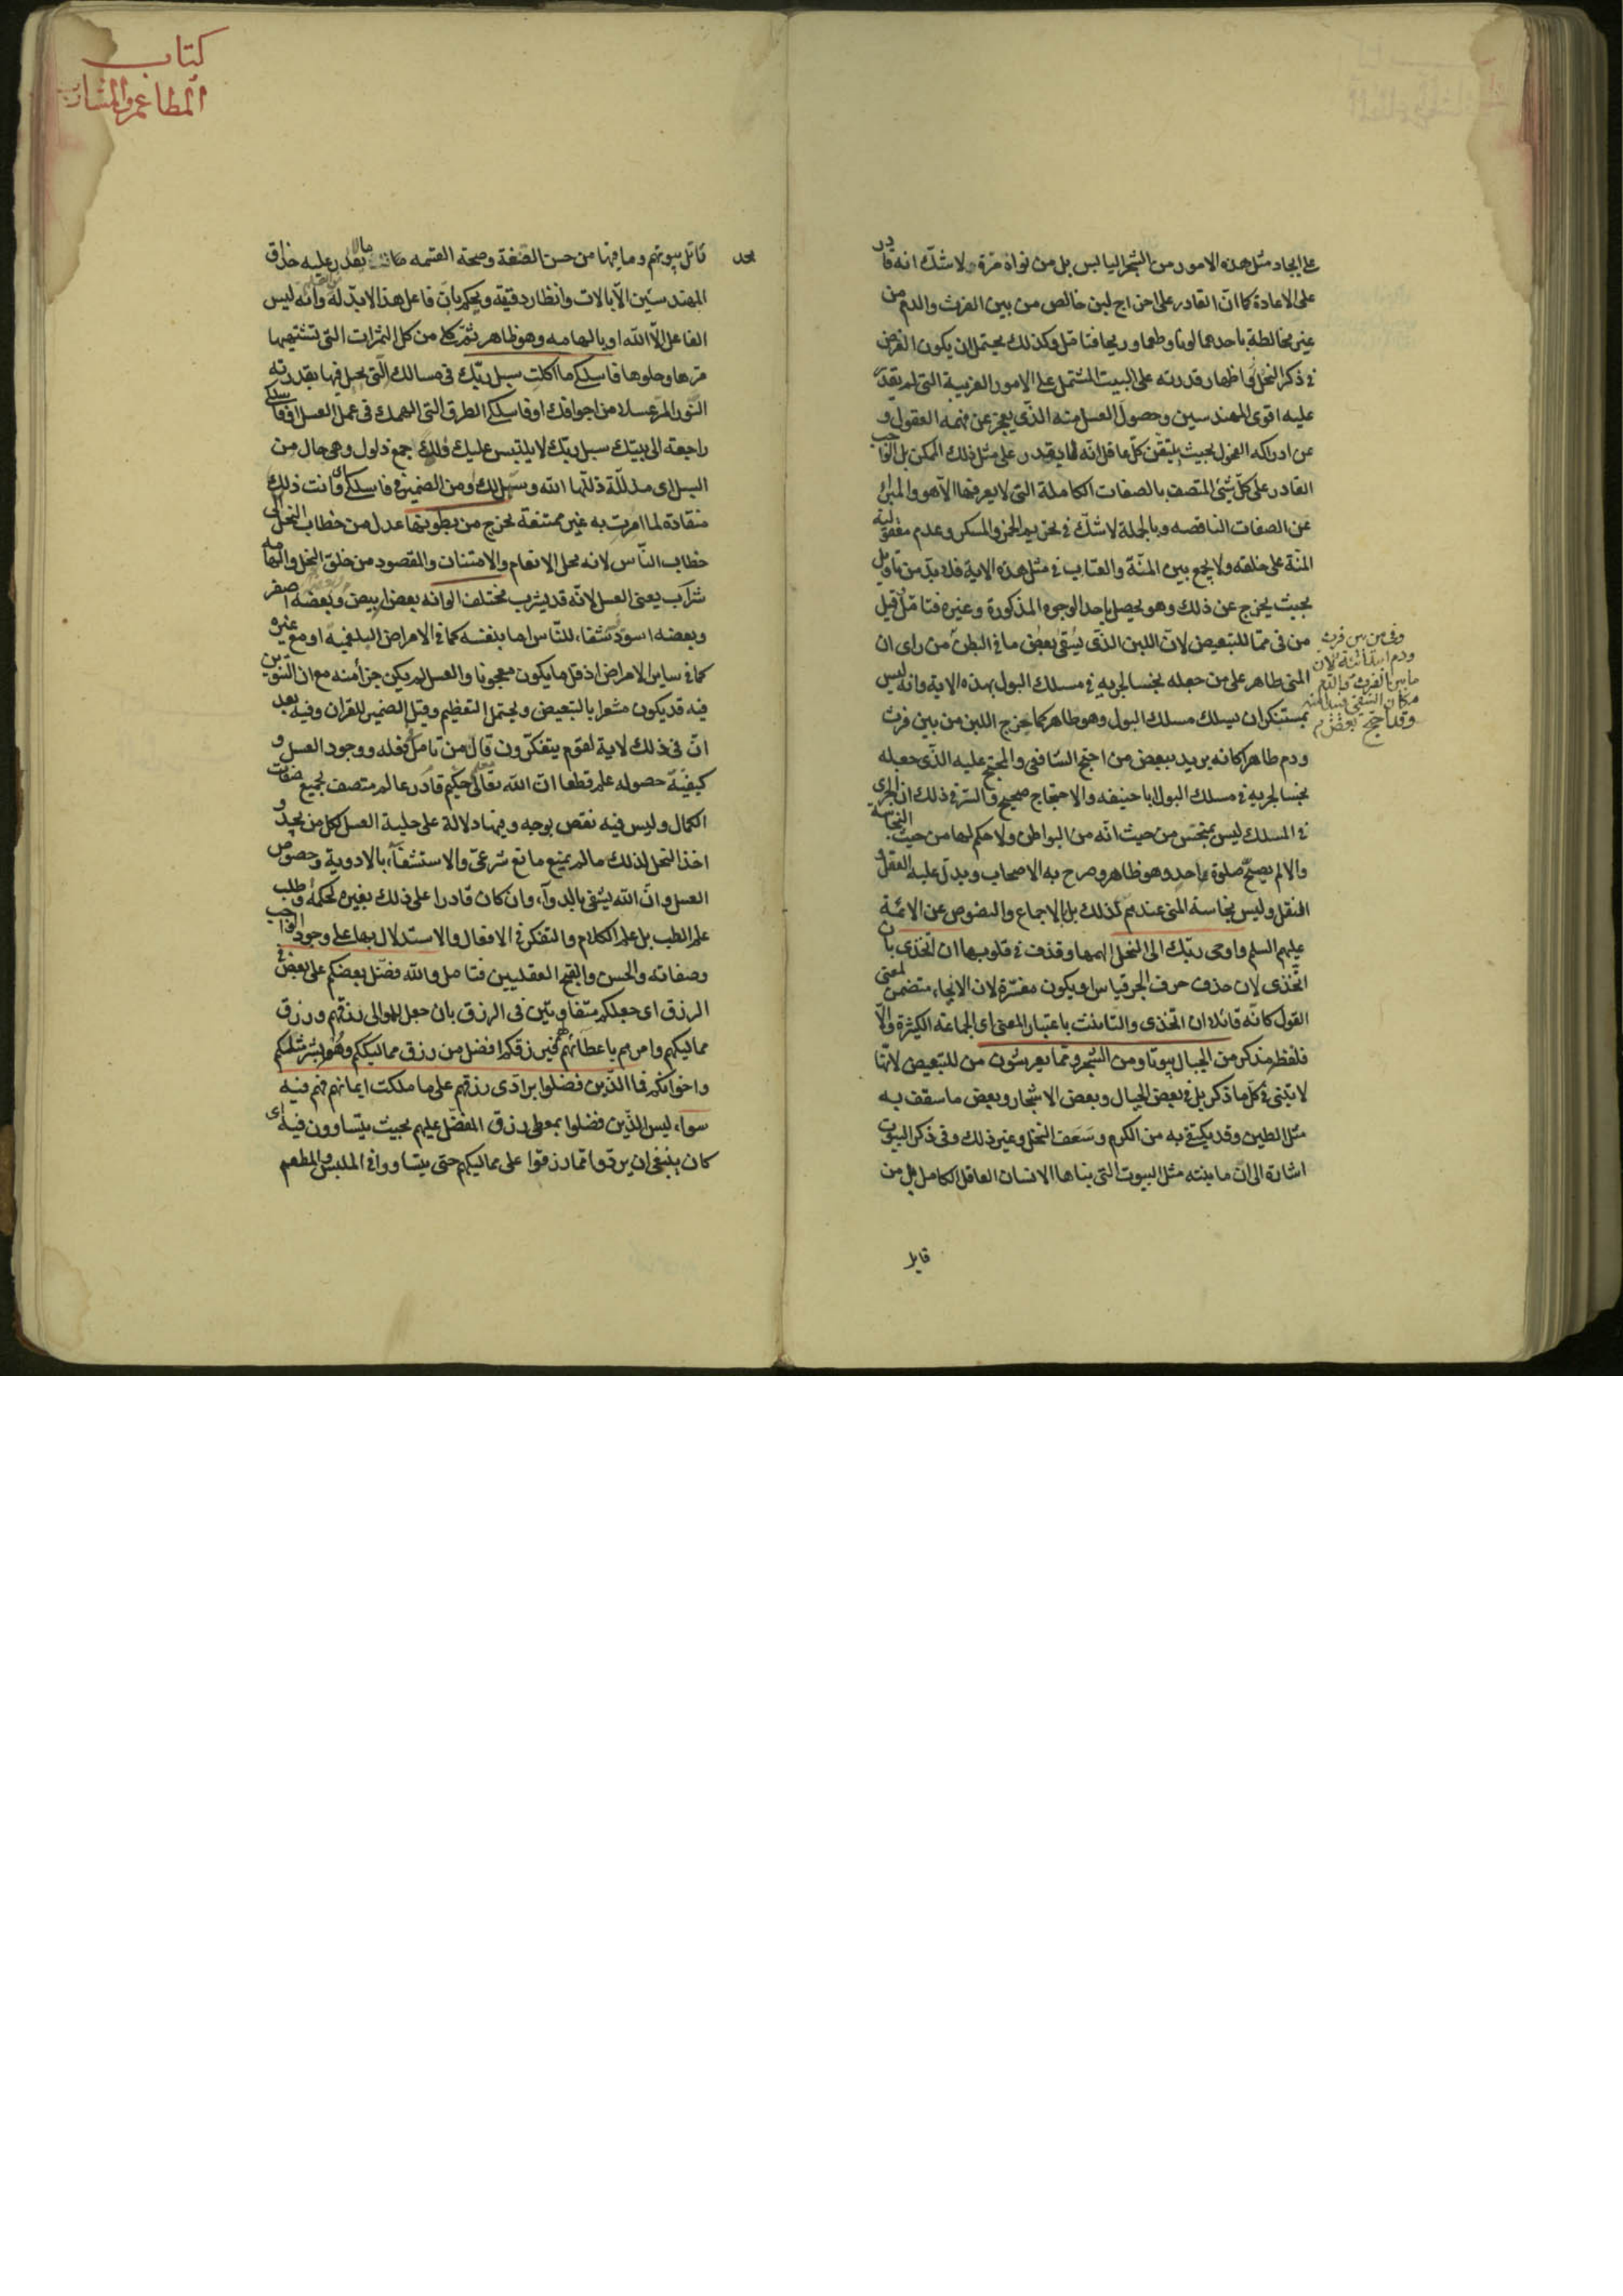 على ايجاد مثل هذه الامور من الشجر اليابس بل من نواة مرة ولا شك انه قادر
على الاعادة كما ان القادر على اخراج لبن خالص من بين الفرث والدم من
غير مخالطة باحدهما لونا وطعما وريحا فتامل وكذلك يحتمل ان يكون الغرض
في ذكر النحل اظهار قدرته على البيت المشتمل على الامور الغريبة التي لم يقدر
عليه اقوى المهندسين وحصول العسل منه الذي يعجز عن فهمه العقول و
عن ادراكه الفحول بحيث يتيقن كل عاقل انه لم يقدر على مثل ذلك الممكن بل الواجب
القادر على كل شئ المتصف بالصفات الكاملة التي لا يعرفها الا هو والمبرئ
عن الصفات الناقصه وبالجملة لا شك في تحريم الخمر والمسكر وعدم معقولية
المنة على خلقه ولا يجمع بين المنة والعتاب في مثل هذه الاية فلا بد من تاويل
بحيث يخرج عن ذلك وهو يحصل باحد الوجوه المذكورة وغيره فتامل قيل
من في مما للتبعيض لان اللبن الذي يسقى بعض ما في البطن من راى ان
المنى طاهر على من جعله نجسا لجريه في مسلك البول بهذه الاية وانه ليس
بمستنكر ان يسلك مسلك البول وهو طاهر كما يخرج اللبن من بين فرث
ودم طاهرا كانه يريد ببعض من احتج الشافعي والمحتج عليه الذي جعله
نجسا لجريه في مسلك البول ابا حنيفه والاحتجاج صحيح والسر في ذلك ان الجرى
في المسلك ليس بمنجس من حيث انه من البواطن ولا حكم لها من حيث النجاسة
والا لم يصح صلوة احد وهو ظاهر وصرح به الاصحاب ويدل عليه العقل و
النقل وليس نجاسة المنى عندهم لذلك بل بالاجماع والنصوص عن الائمة
عليهم السلم واوحى ربك الى النحل الهمها وقذف في قلوبها ان اتخذى بان
اتخذى لان حذف حرف الجر قياس او يكون مفسرة لان الايحاء متضمن لمعنى
القول كانه قائلا ان اتخذى والتانيث باعتبار المعنى اى الجماعة الكثيرة والا
فلفظه مذكر من الجبال بيوتا ومن الشجر ومما يعرشون من للتبعيض لانها
لا تبنى في كل ما ذكر بل في بعض الجبال وبعض الاشجار وبعض ما سقف به
مثل الطين وقد يكتفى به من الكرم وسعف النخل وغير ذلك وفي ذكر البيوت
اشارة الى ان ما بنته مثل البيوت التي بناها الانسان العاقل الكامل بل من
وفي من بين فرث
ودم ابتدائية لان
ما بين الفرث والدم
مكان السقى
وقد احتج بعض
قابل
كتاب
المطاعم والمشارب
قابل بيوتهم وما فيها من حسن الصنعة وصحة القسمه ما لا يقدر عليه حذاق
المهندسين الا بالات وانظار دقيقه ويحكم بان فاعل هذا لابد له وانه ليس
الفاعل الا الله او بالهامه وهو ظاهر ثم كلى من كل الثمرات التي تشتهيها
مرها وحلوها فاسلكى ما اكلت سبل ربك في مسالك التي يحيل فيها بقدرته
النور المر عسلا من اجوافك او فاسلكى الطرق التي الهمك في عمل العسل او فاسلكى
راجعة الى بيتك سبل ربك لا يلتبس عليك ذللا جمع ذلول وهى حال من
السبل اى مذللة ذللها الله وسهل لك او من الضمير في فاسلكى اى وانت ذلك
منقادة لما امرت به غير ممتنعة يخرج من بطونها عدل من خطاب النحل الى
خطاب الناس لانه محل الانعام والامتنان والمقصود من خلق النحل والهامه
شراب يعنى العسل لانه قد يشرب مختلف الوانه بعض ابيض وبعضه اصفر
وبعضه اسود شفاء للناس اما بنفسه كما في الامراض البلغمية او مع غيره
كما في ساير الامراض اذ قل ما يكون معجونا والعسل لم يكن جزأ منه مع ان التنوين
فيه قد يكون مشعرا بالتبعيض ويحتمل التعظيم وقيل الضمير للقران وفيه بعد
ان في ذلك لاية لقوم يتفكرون قال من تامل فعله ووجود العسل و
كيفية حصوله علم قطعا ان الله تعالى حكيم قادر عالم متصف بجميع صفات
الكمال وليس فيه نقص بوجه وفيها دلالة على حلية العسل لكل من يجد و
اخذ النحل لذلك ما لم يمنع مانع شرعى والاستشفاء بالادوية وخصوص
العسل وان الله يشفى بالدواء وان كان قادرا على ذلك بغيره لحكمة وطلب
علم الطب بل علم الكلام والتفكر في الافعال والاستدلال بها على وجود الواجب
وصفاته والحسن والقبح العقليين فتامل والله فضل بعضكم على بعض في
الرزق اى جعلكم متفاوتين في الرزق بان جعل للموالى رزقهم ورزق
مماليكهم وامرهم باعطائهم فمن رزقكم افضل من رزق مماليككم وهم بشر مثلكم
واخوانكم فما الذين فضلوا برادى رزقهم على ما ملكت ايمانهم فهم فيه
سواء ليس الذين فضلوا بمعطى رزق المفضل عليهم بحيث يتساوون فيه اى
كان ينبغى ان يردوا مما رزقوا على مماليكهم حتى يتساووا في الملبس والمطعم